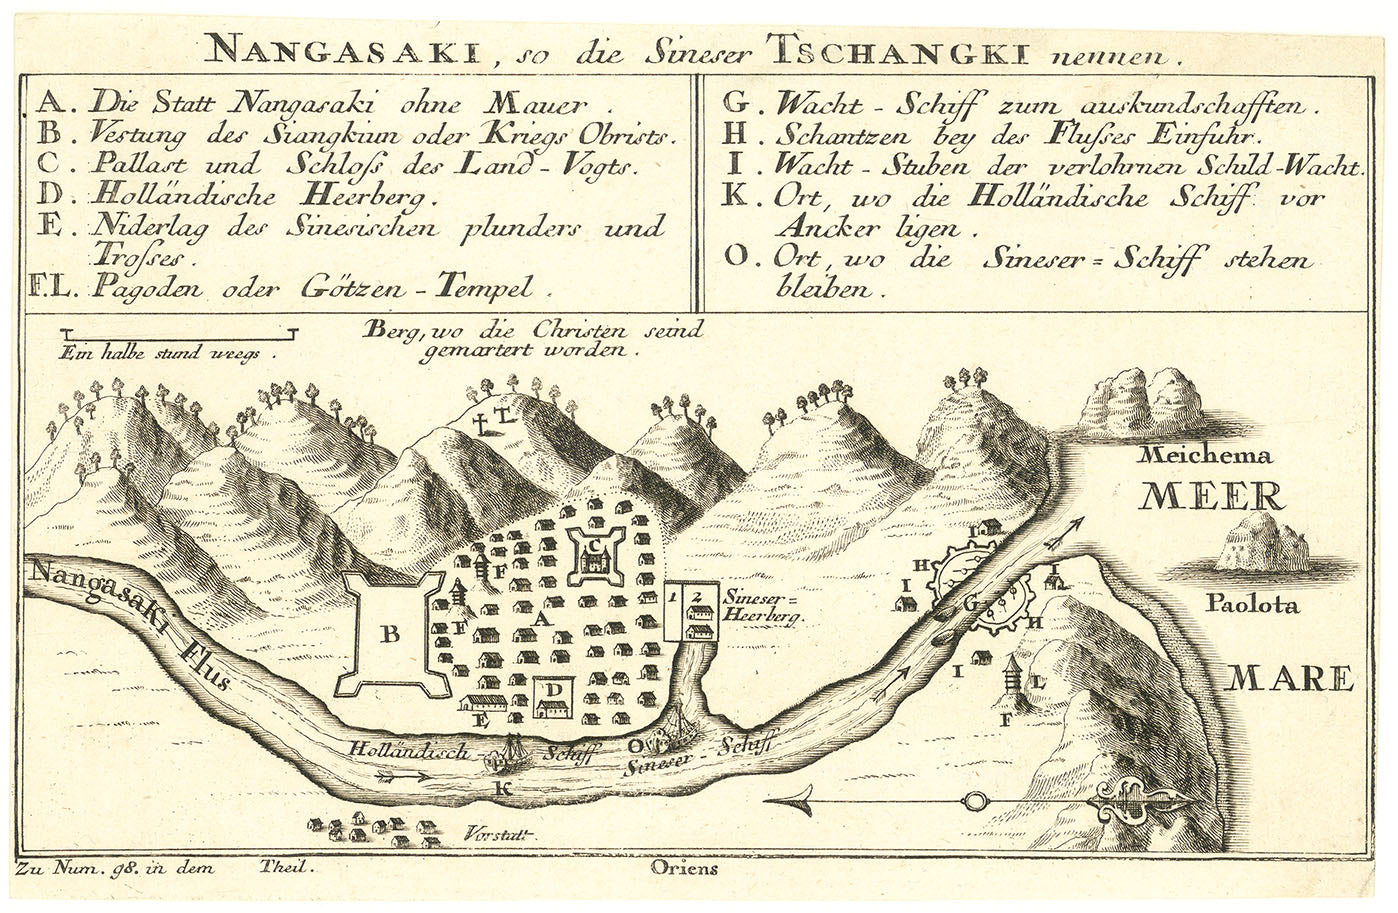 NANGASAKI, so die Sineser TSCHANGKI nennen.
A. Die Statt Nangasaki ohne Mauer.
B. Vestung des Siangkiun oder Kriegs Obrists.
C. Pallast und Schloss des Land-Vogts.
D. Holländische Heerberg.
E. Niderlag des Sinesischen plunders und
Trosses.
F.L. Pagoden oder Götzen-Tempel.
G. Wacht-Schiff zum auskundschafften.
H. Schantzen bey des Flusses Einfuhr.
I. Wacht-Stuben der verlohrnen Schild-Wacht.
K. Ort, wo die Holländische Schiff vor
Ancker ligen.
O. Ort, wo die Sineser=Schiff stehen
bleiben.
Ein halbe stund weegs.
Berg, wo die Christen seind
gemartert worden.
L
Meichema
MEER
Paolota
MARE
Nangasaki Flus
B
C
F
F
A
D
E
1 2
Sineser=
Heerberg.
I
H
I
G
I
H
I
L
F
Holländisch Schiff
K
O
Sineser-Schiff
Vorstatt.
Zu Num. 98. in dem Theil.
Oriens